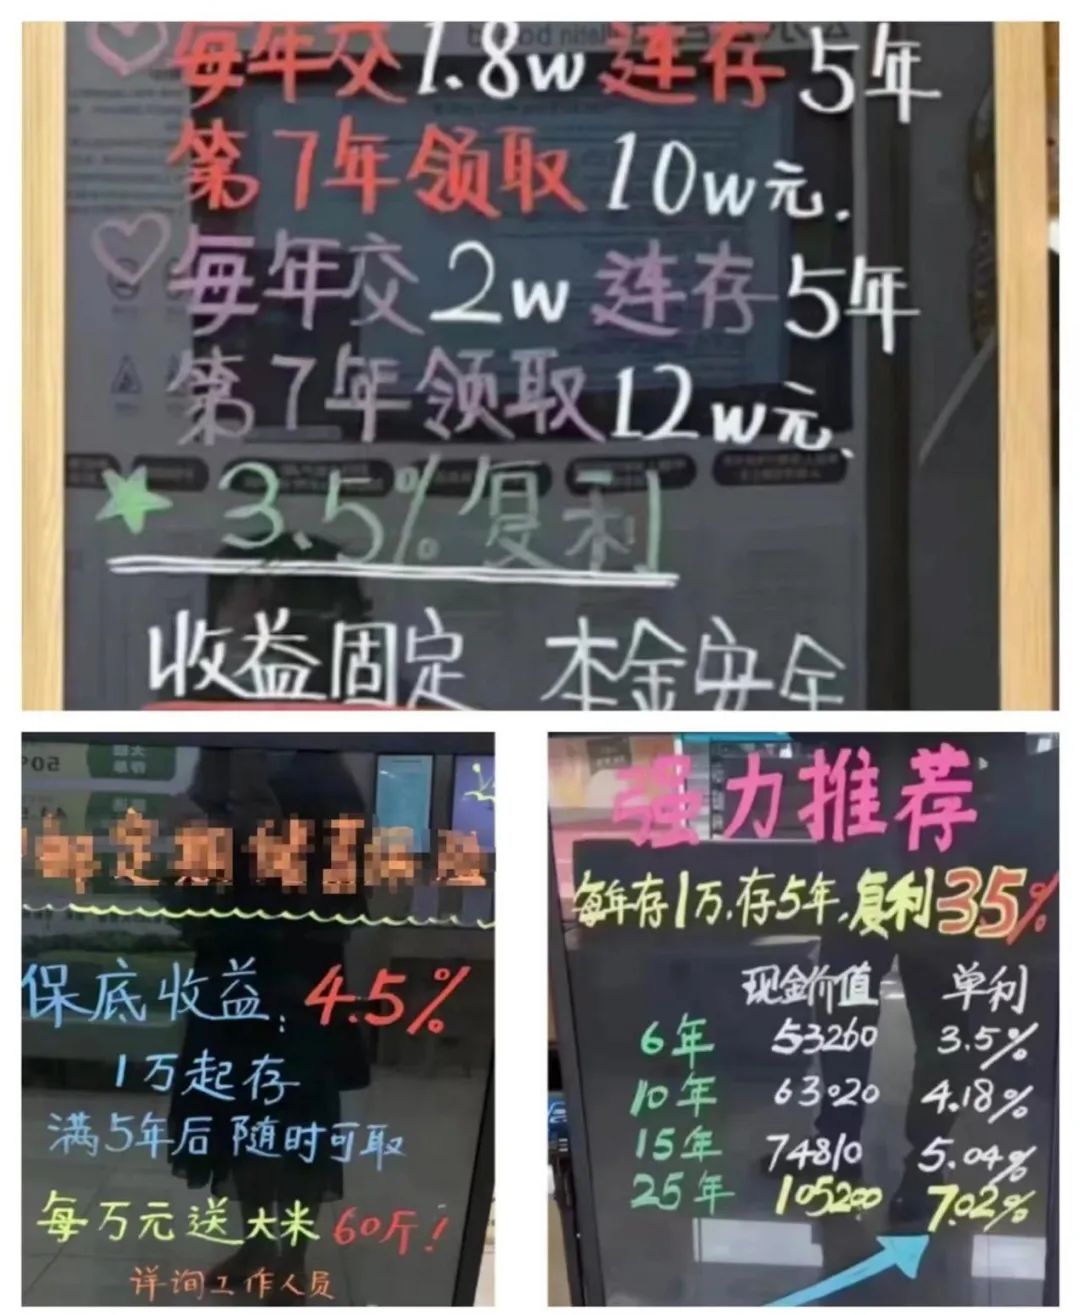 每年交1.8w连存5年
第7年领取10w元.
每年交2w连存5年
第7年领取12w元.
3.5%复利
收益固定 本金安全
保底收益: 4.5%
1万起存
满5年后随时可取
每万元送大米60斤!
详询工作人员
强力推荐
每年存1万.存5年,复利35%
现金价值 单利
6年 53260 3.5%
10年 63020 4.18%
15年 74810 5.04%
25年 105200 7.02%